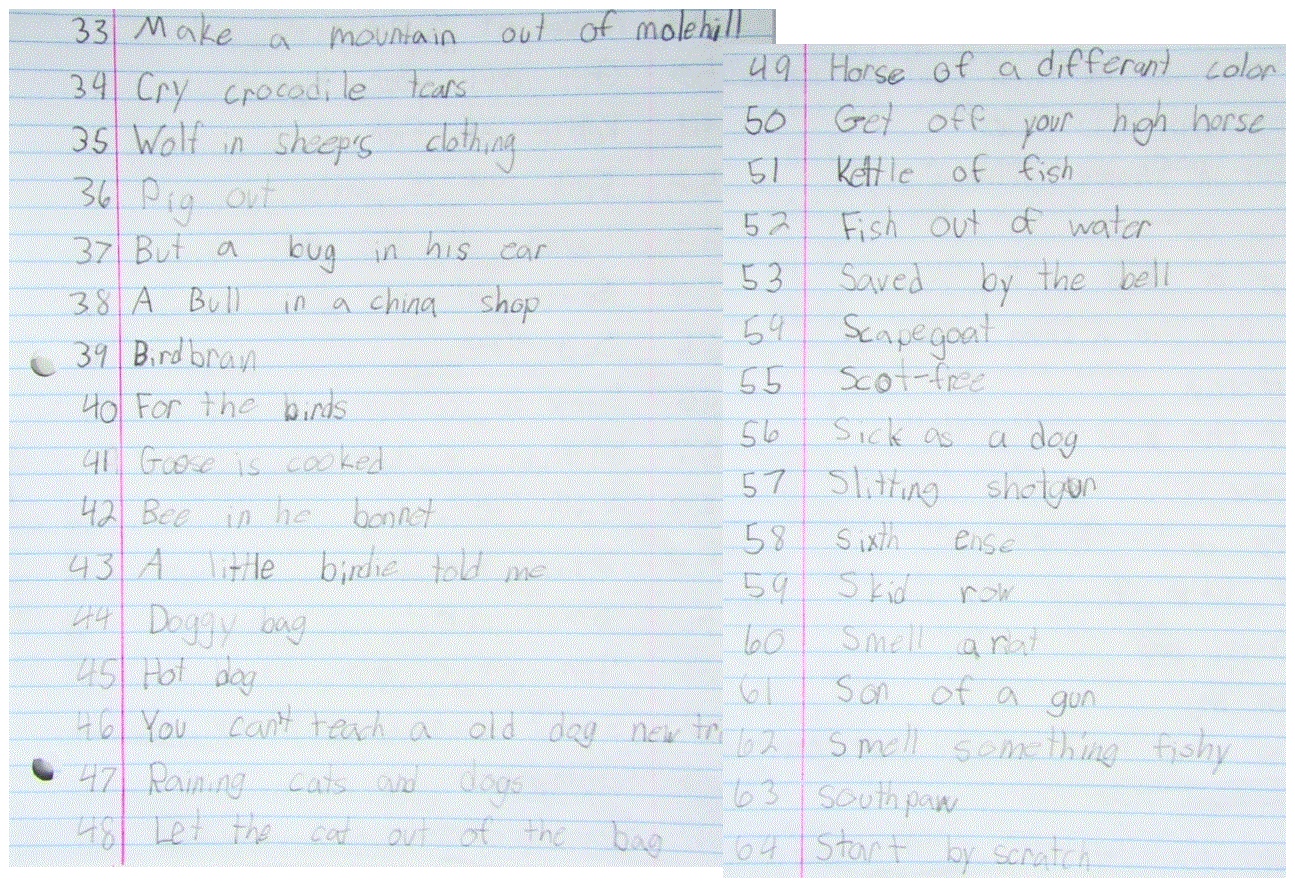 33 Make a mountain out of molehill
34 Cry crocodile tears
35 Wolf in sheep's clothing
36 Pig out
37 But a bug in his ear
38 A Bull in a china shop
39 Birdbrain
40 For the birds
41 Goose is cooked
42 Bee in he bonnet
43 A little birdie told me
44 Doggy bag
45 Hot dog
46 You can't teach a old dog new tri
47 Raining cats and dogs
48 Let the cat out of the bag
49 Horse of a differant color
50 Get off your high horse
51 Kettle of fish
52 Fish out of water
53 Saved by the bell
54 Scapegoat
55 Scot-free
56 Sick as a dog
57 Slitting shotgun
58 Sixth ense
59 Skid row
60 Smell a rat
61 Son of a gun
62 Smell something fishy
63 Southpaw
64 Start by scratch